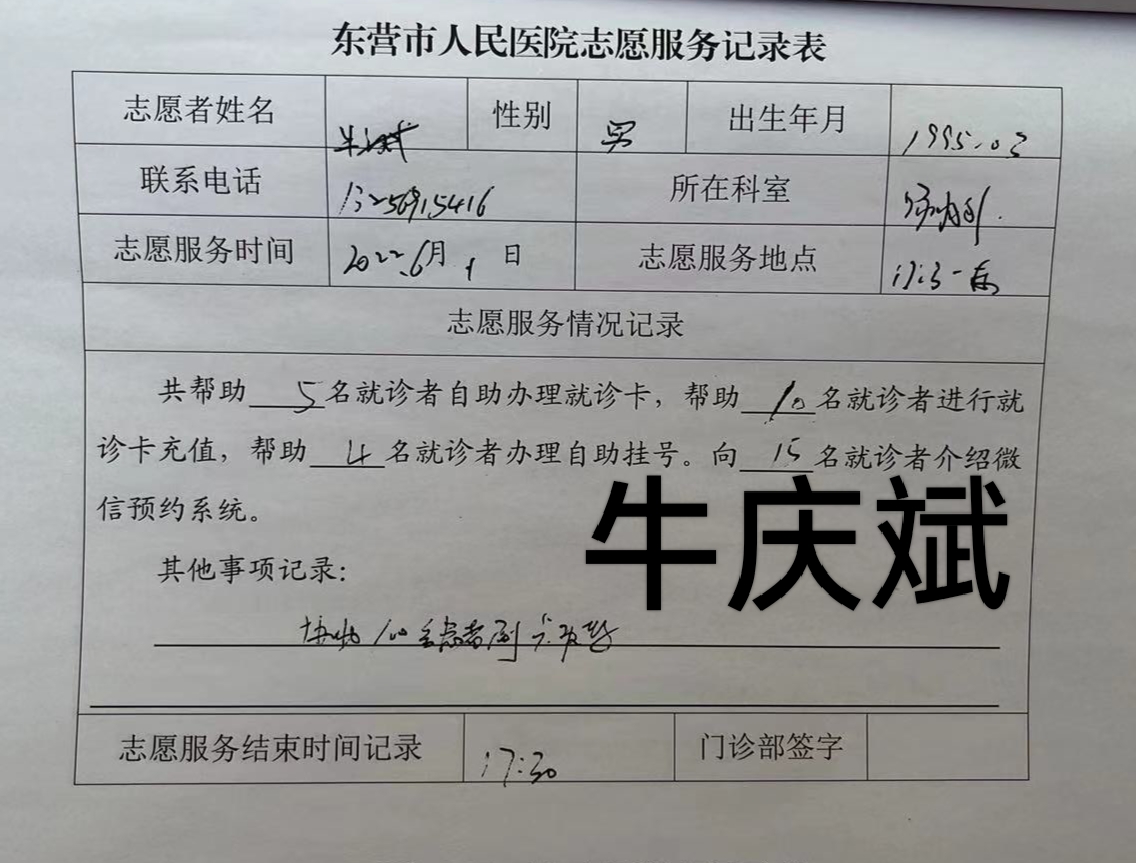 东营市人民医院志愿服务记录表
志愿者姓名 性别 男 出生年月 1995.03
联系电话 13256915416 所在科室
志愿服务时间 2022.6月1日 志愿服务地点
志愿服务情况记录
共帮助 5 名就诊者自助办理就诊卡，帮助 10 名就诊者进行就
诊卡充值，帮助 4 名就诊者办理自助挂号。向 15 名就诊者介绍微
信预约系统。
牛庆斌
其他事项记录：
协助 100 患者
志愿服务结束时间记录 17:30 门诊部签字